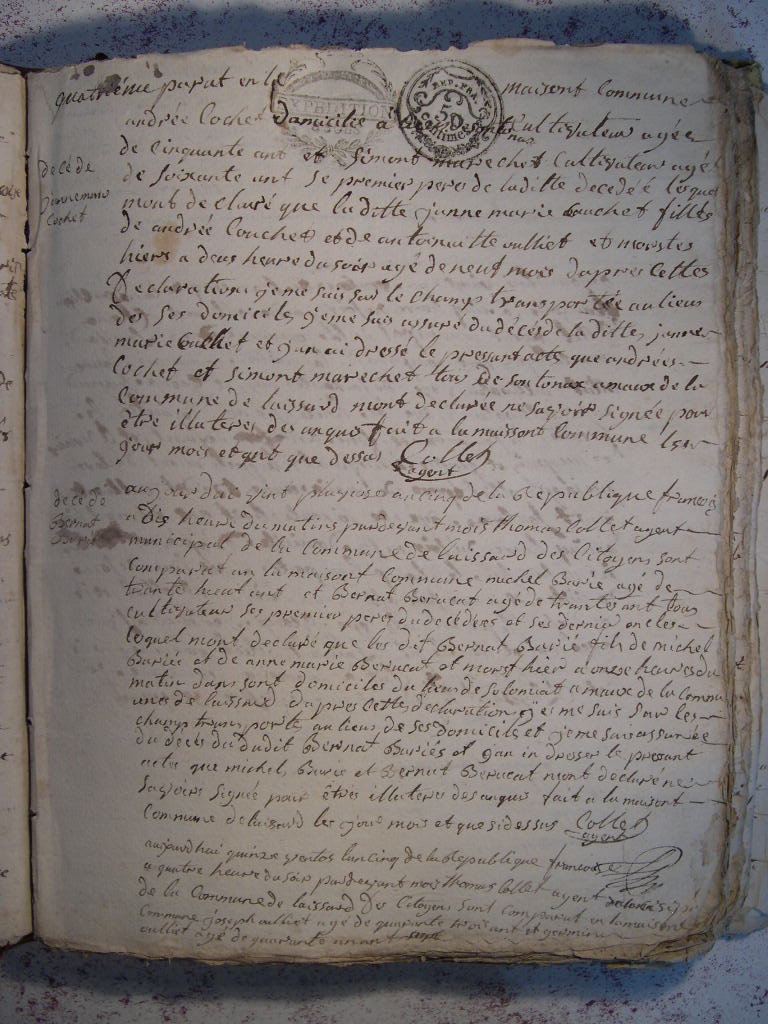 quatriéme parut en la maisont Commune
andrée Cochet domicilié a Cultivateur agée
de Cinquante ant et Simont marechet Cultivateur agé
de soixante ant Se premier pere de laditte decedéé lesquel
mont declaré que laditte janne marie Couchet filles
de andrée Couchet et de antoinette vulliet et mortes
hiers a deus heure du soir agé de neuf mois dapres Cettes
Declaration jeme suis sur le champ transportée au lieux
des ses domiciles jeme suis assuré du décés de la ditte janne
marie Couchet et jan ai dressé le pressant acte que andrées
Cochet et simont marechet tous de amaux de la
Commune de laissard mont declarée ne savoir signée pour
être illateres des anquis fait a la maissont Commune les
jour mois et ant que dessus Collet
agent
decéde
janne marie
Cochet
aujourdui vint pluviose an cinq de la Republique francois
a dis heure du matins pardevant mois Thomas Collet agent
municipal de la Commune de laissard des Citoyens sont
Comparut an la maisont Commune michel Barié agé de
trante huit ant et Bernat Berucat agé de trante ant tous
Cultivateur ses premier peres du decédées et ses dernier oncles
lesquel mont declaré que les dit Bernat Barié fils de michel
Bariés et de anne marie Berucat et mort hier a onze heures du
matin dans sont domiciles du lieus de soloniat amaux de la Commu
unes de laissard dapres Cette declaration je me suis sur les
champ transporté au lieux de ses domicile et jeme suis assurée
du decés du dudit Bernat Bariés et jan in dresser le presant
actes que michel Barie et Bernat Berucat mont declaré ne
savoirs signée pour êtres illateres des anquis fait a la maisont
Commune de laissard les jour mois et que si dessus Collet
agent
decéde
Bernat
Barié
aujourdhui quinze ventos lan cinq de la Republique francoise
a quatre heure du soir pardevant mois Thomas Collet agent
de la Commune de laissard des Citoyens sont Comparut en la maisont
Commune joseph vulliet agé de quarante trois ant et germin
vulliet agé de quarante un ant
REP. FRA.
50
Centimes
EXPEDITION